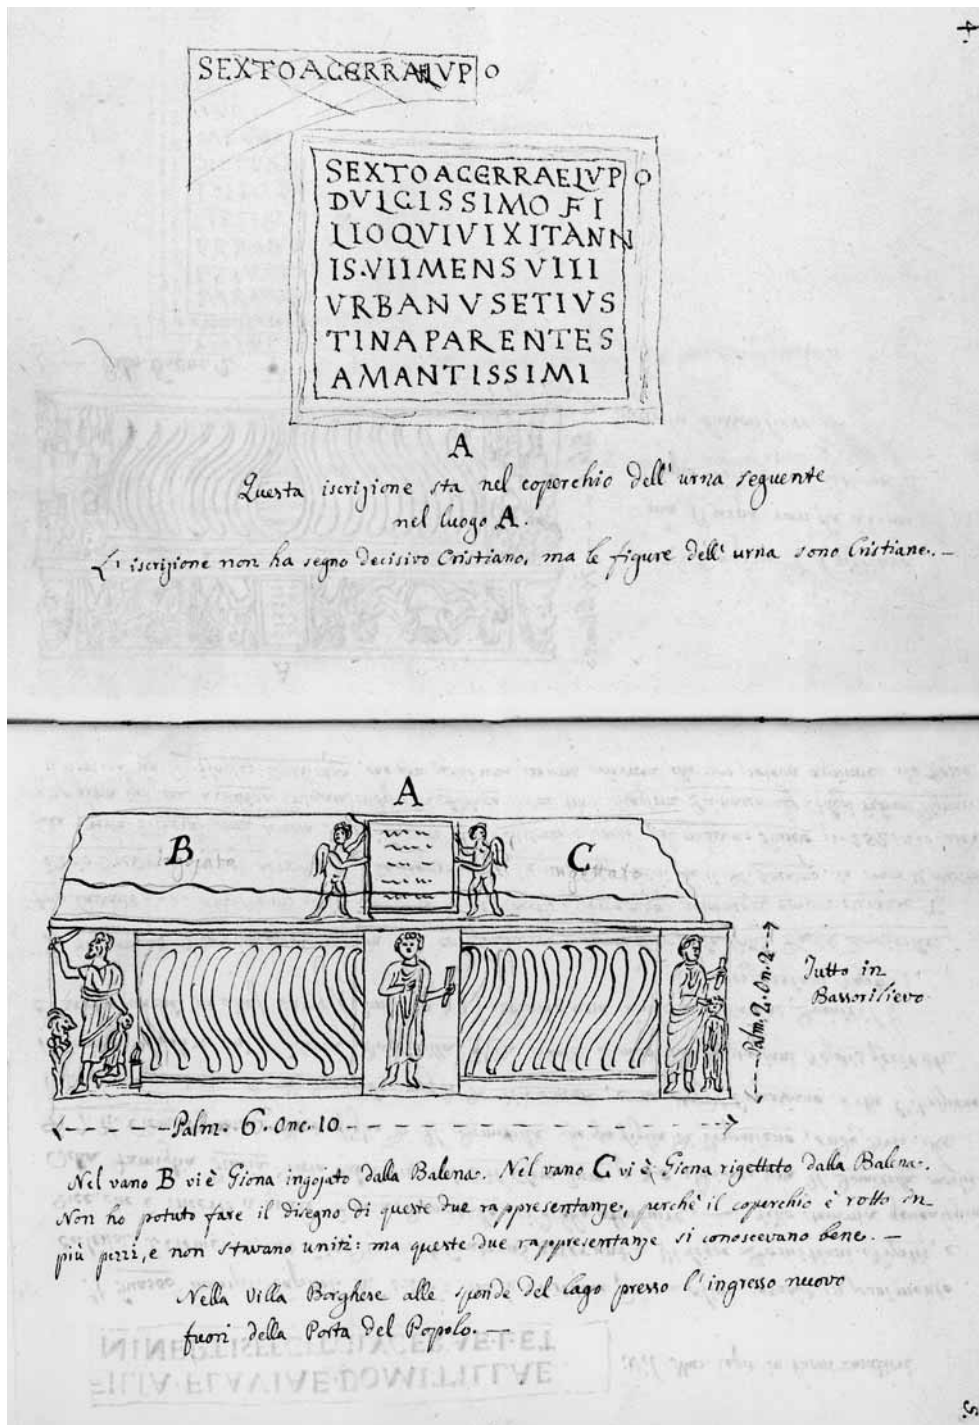 4.
SEXTO ACERRAE LVPO
SEXTO ACERRAE LVPO
DVLCISSIMO FI
LIO QVI VIXIT ANN
IS·VII MENS VIII
VRBANVS ET IVS
TINA PARENTES
AMANTISSIMI
A
Questa iscrizione sta nel coperchio dell' urna seguente
nel luogo A.
L' iscrizione non ha segno decisivo Cristiano, ma le figure dell' urna sono Cristiane. —
A
B
C
Palm. 2. On. 2
Tutto in
Bassorilievo
Palm. 6. Onc. 10
Nel vano B vi è Giona ingojato dalla Balena. Nel vano C vi è Giona rigettato dalla Balena.
Non ho potuto fare il disegno di queste due rappresentanze, perchè il coperchio è rotto in
più pezzi, e non stavano uniti: ma queste due rappresentanze si conoscevano bene. —
Nella Villa Borghese alle sponde del lago presso l' ingresso nuovo
fuori della Porta del Popolo. —
FILIA·FLAVIAE·DOMITILLAE
5.